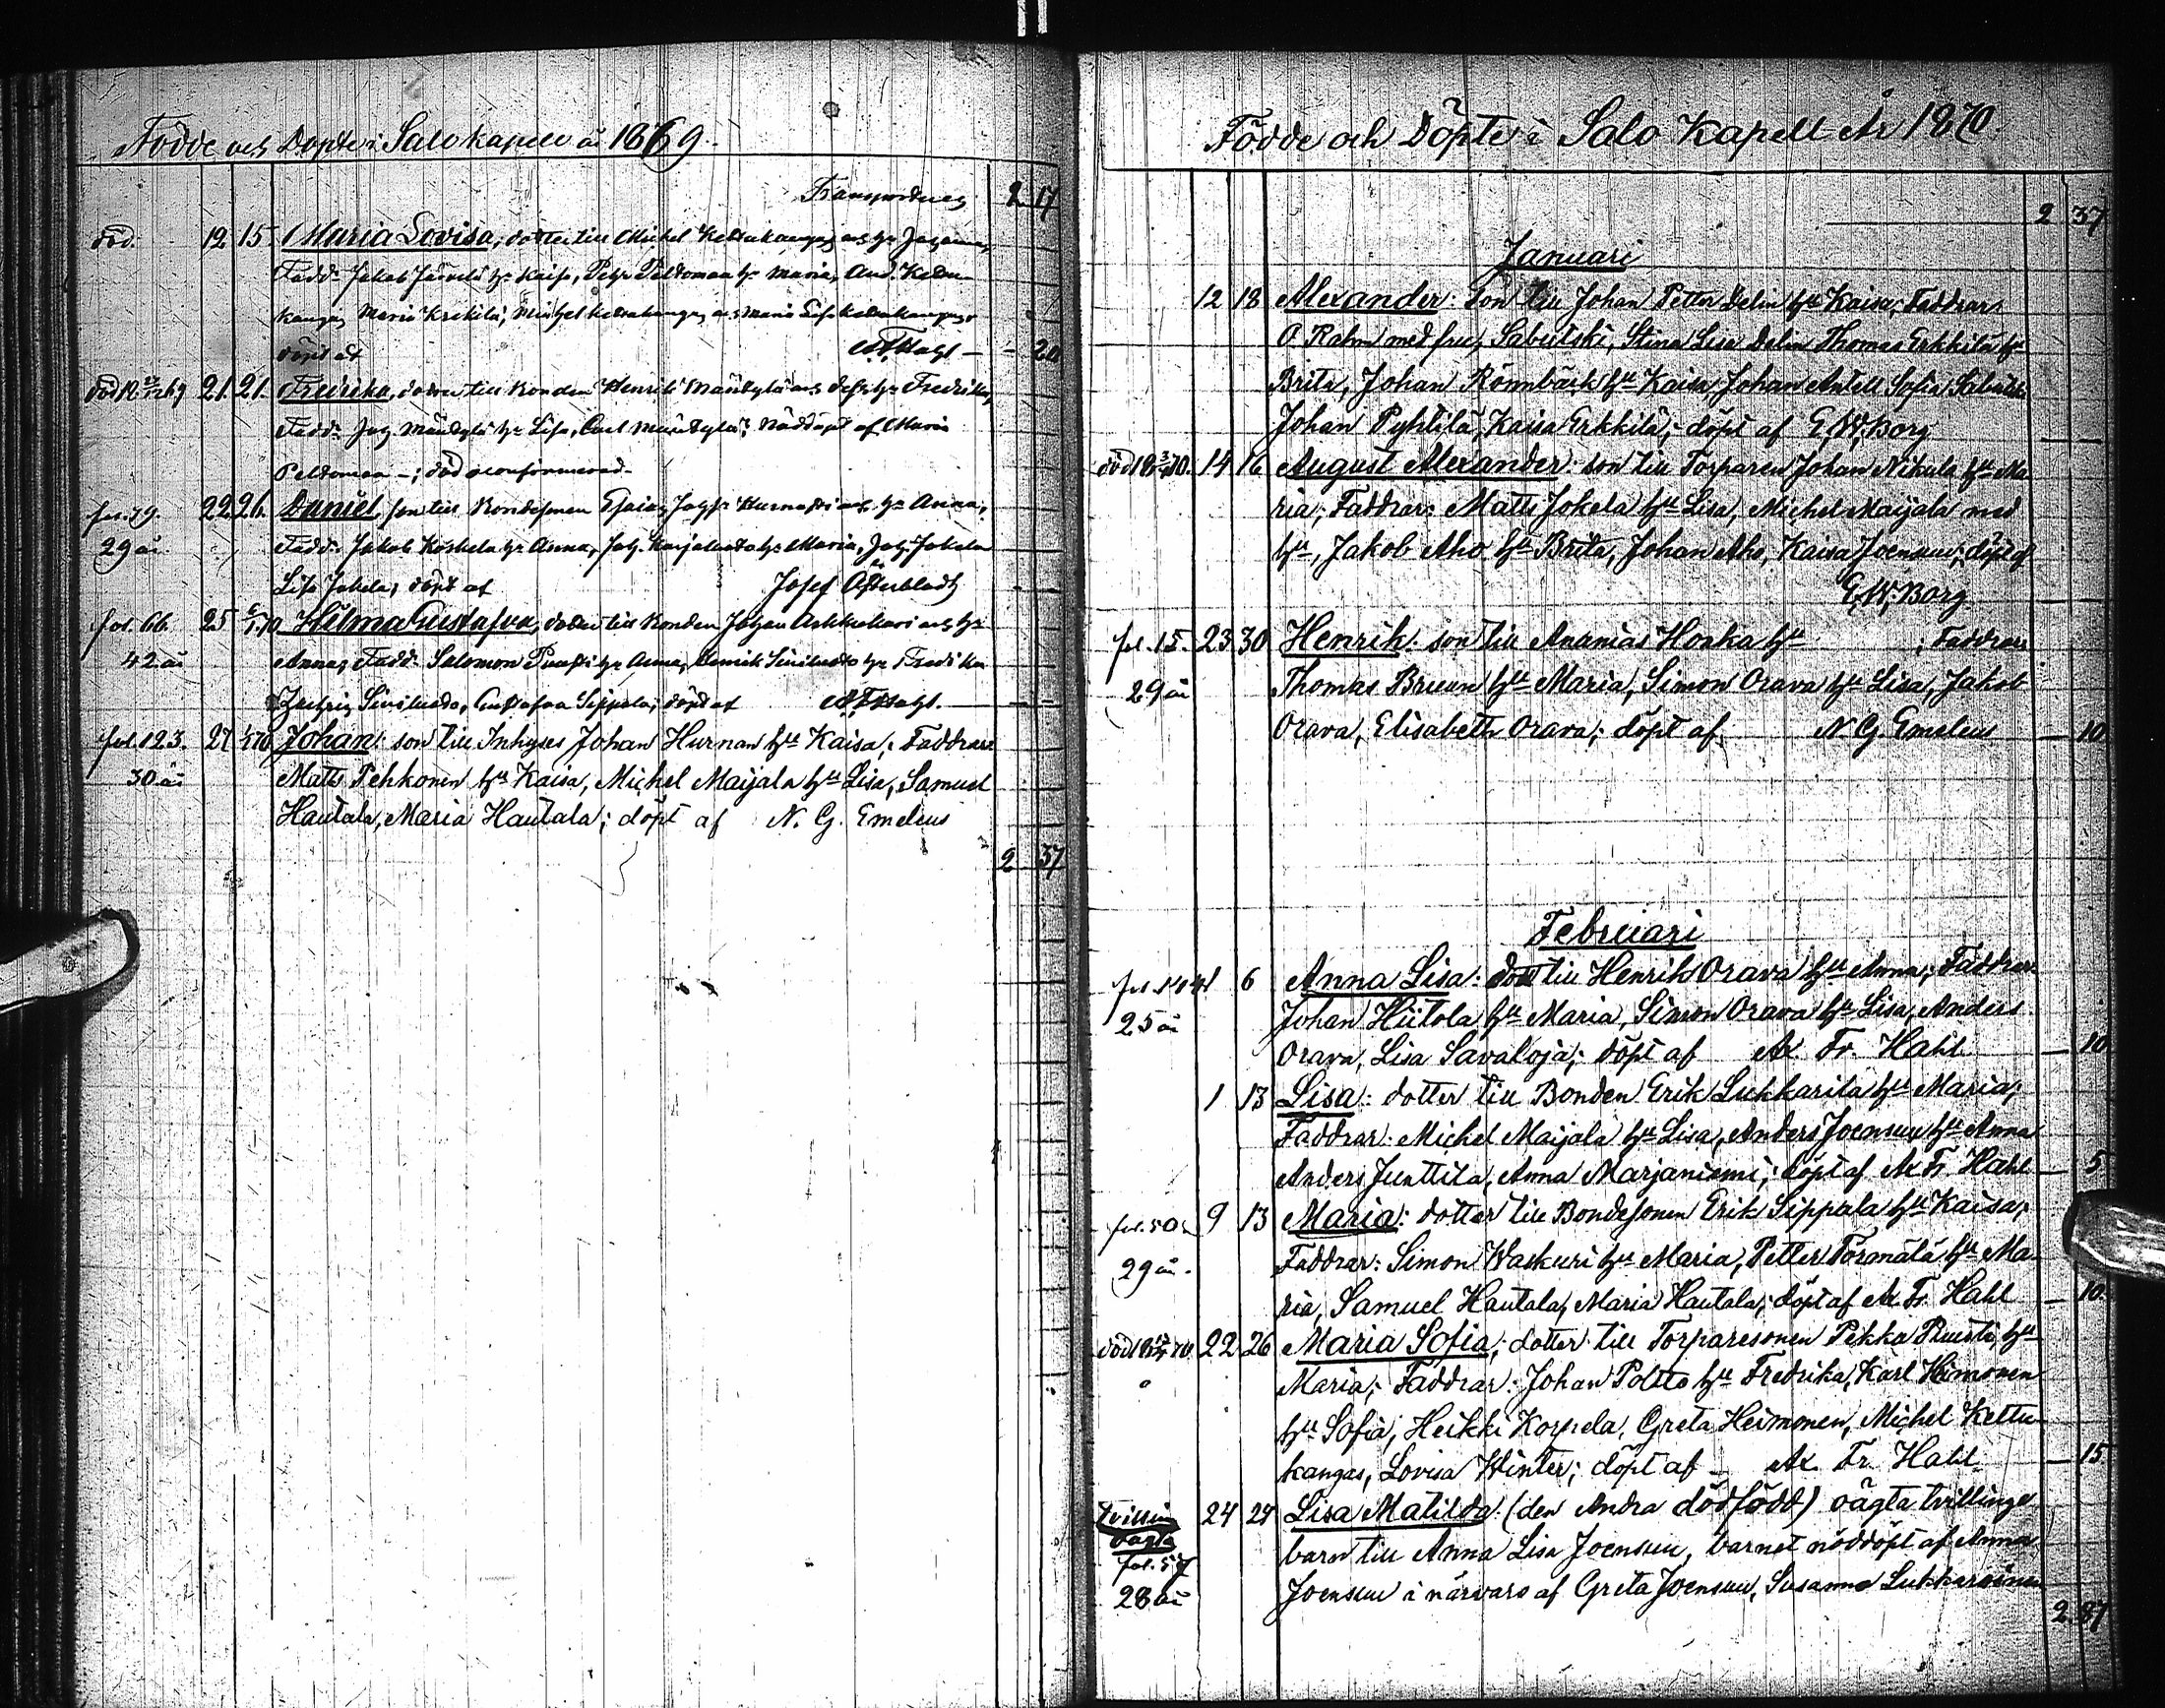 Födde och Döpte i Salo kapell år 1869.
Transporteras 2 17
död. 12 15. Maria Lovisa, dotter till Michel Kettukangas och h:u Johanna,
Fadd: Jakob Järvelä h:u Kaisa, Petr Peltomaa h:u Maria, And. Kettu-
kangas Maria Krekilä, Michel Kettukangas och Maria Lisa Kettukangas
döpt af A. F. Hahl — - 20
död 18 69 21. 21. Fredrika, dotter till Bonden Henrik Mäntylä och dess h:u Fredrika,
Fadd: Joh. Mäntylä h:u Lisa, Carl Mäntylä; Nöddöpt af Maria
Peltomaa -; död oconfirmerad.
fol. 79. 22. 26. Daniel, son till Bondesonen Esaias Johans. Hurnasti och h:u Anna,
29 år Fadd: Jakob Koskela h:u Anna, Joh. Karjaluoto h:u Maria, Joh. Jokela
Lisa Jokela, döpt af Josef Österbladh - -
fol. 66. 25 6/1.70 Hilma Gustafva, dotter till Bonden Johan Ashkakari och h:u
42 år Anna, Fadd: Salomon Puusti h:u Anna, Henrik Siniluoto h:u Fredrika
Zachris Siniluoto, Gustafva Sippola; döpt af A. F. Hahl. - -
fol. 123. 27 1/1 70 Johan: son till Inhyses Johan Hurnan h:u Kaisa; Faddrar:
30 år Matts Pehkonen h:u Kaisa, Michel Maijala h:u Lisa, Samuel
Hautala, Maria Hautala; döpt af N. G. Emeleus
2 37
Födde och Döpte i Salo Kapell År 1870
2 37
Januari
12 18 Alexander: son till Johan Petter Delin h:u Kaisa; Faddrar:
O Rahm med fru, Sabelski, Stina Lisa Delin Thomas Erkkilä h:u
Brita, Johan Rönnbäck h:u Kaisa, Johan Antell Sofia
Johan Pyhtilä, Kaisa Erkkilä; döpt af E. W. Borg — —
död 18 3/4 70. 14 16 August Alexander: son till Torparen Johan Nikula h:u Ma-
ria; Faddrar: Matts Jokela h:u Lisa, Michel Maijala med
h:u, Jakob Aho h:u Brita, Johan Aho, Kaisa Joensuu; döpt af
E. W. Borg
fol. 15. 23 30 Henrik: son till Ananias Honka h:u ; Faddrar
29 år Thomas Bruun h:u Maria, Simon Orava h:u Lisa, Jakob
Orava, Elisabeth Orava; döpt af N. G. Emeleus — 10
Februari
fol. 6 Anna Lisa: dott till Henrik Orava h:u Anna; Faddrar:
25 år Johan Hiitola h:u Maria, Simon Orava h:u Lisa, Anders
Orava, Lisa Savaloja; döpt af Ax. Fr. Hahl — 10
1 13 Lisa: dotter till Bonden Erik Lukkarila h:u Maria;
Faddrar: Michel Maijala h:u Lisa, Anders Joensuu h:u Anna
Anders Junttila, Anna Marjaniemi; döpt af Ax. Fr. Hahl — 5
fol. 50. 9 13 Maria: dotter till Bondesonen Erik Sippala h:u Kaisa;
29 år. Faddrar: Simon Waskuri h:u Maria, Petter Törmälä h:u Ma-
ria, Samuel Hautala, Maria Hautala; döpt af Ax. Fr. Hahl — 10.
död 18 70 22 26 Maria Sofia; dotter till Torparesonen Pekka Puusti, h:u
Maria; Faddrar: Johan Poltto h:u Fredrika, Karl Heimonen
h:u Sofia, Heikki Korpela, Greta Heimonen, Michel Kettu-
kangas, Lovisa Winter; döpt af – Ax. Fr. Hahl. — 15
Tvilling 24 27 Lisa Matilda: (den Andra dödfödd) oägta tvillinge
oägta barn till Anna Lisa Joensuu, barnet nöddöpt af Anna
fol. 57 Joensuu i närvaro af Greta Joensuu, Susanna Lukkaroinen
28 år
2 87